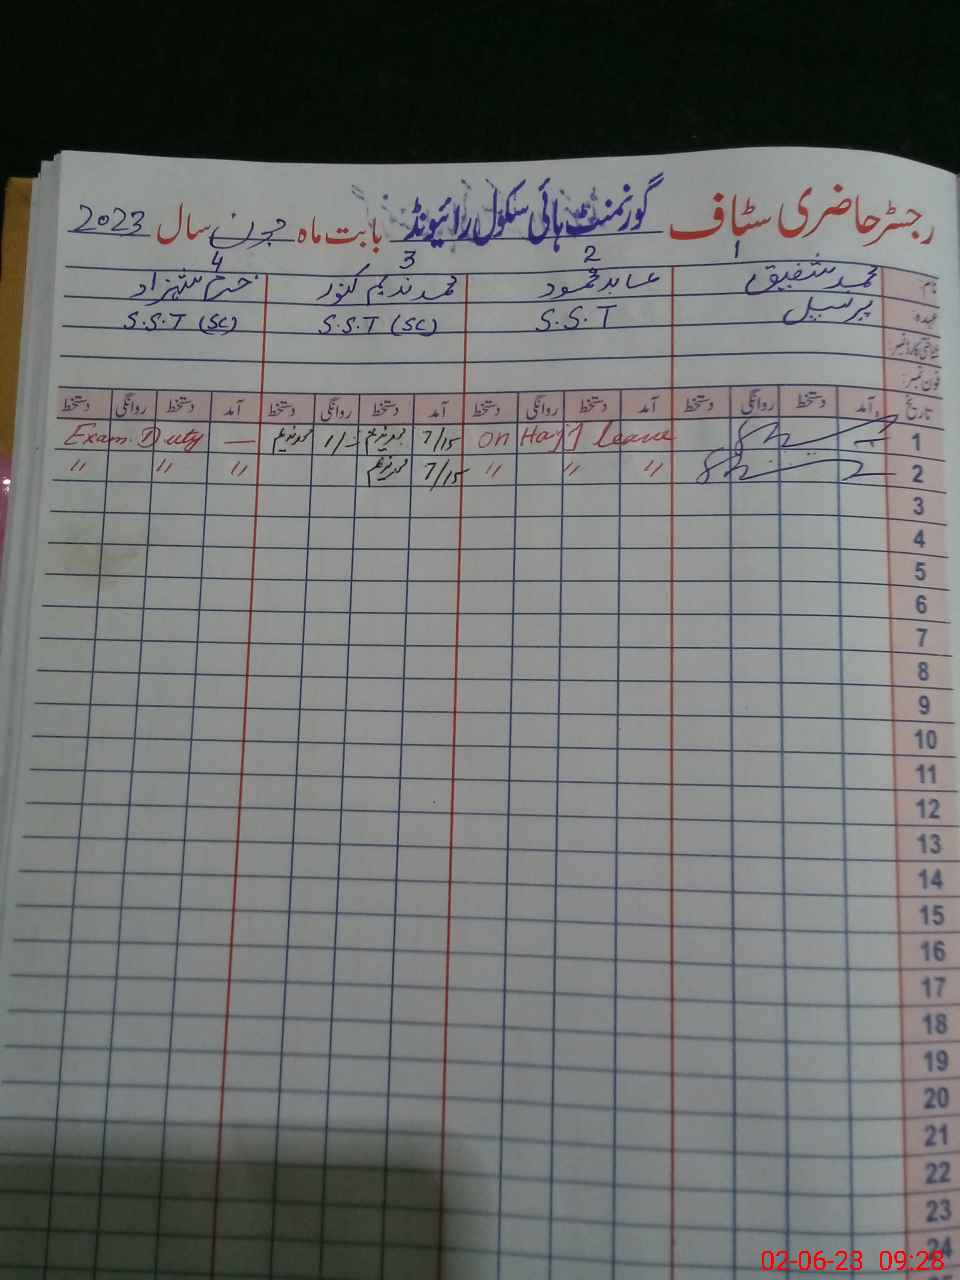 رجسٹر حاضری سٹاف گورنمنٹ ہائی سکول رائیونڈ بابت ماہ جون سال 2023
1 2 3 4
نام: محمد شفیق عابد محمود محمد ندیم کنور خرم شہزاد
عہدہ: پرنسپل S.S.T S.S.T (SC) S.S.T (SC)
شناختی کارڈ نمبر:
فون نمبر:
تاریخ آمد دستخط روانگی دستخط آمد دستخط روانگی دستخط آمد دستخط روانگی دستخط آمد دستخط روانگی دستخط
1 On Hajj leave 7/15 محمد ندیم 1/- محمد ندیم — Exam. Duty
2 〃 〃 〃 7/15 محمد ندیم 〃 〃 〃
3
4
5
6
7
8
9
10
11
12
13
14
15
16
17
18
19
20
21
22
23
24
02-06-23 09:28